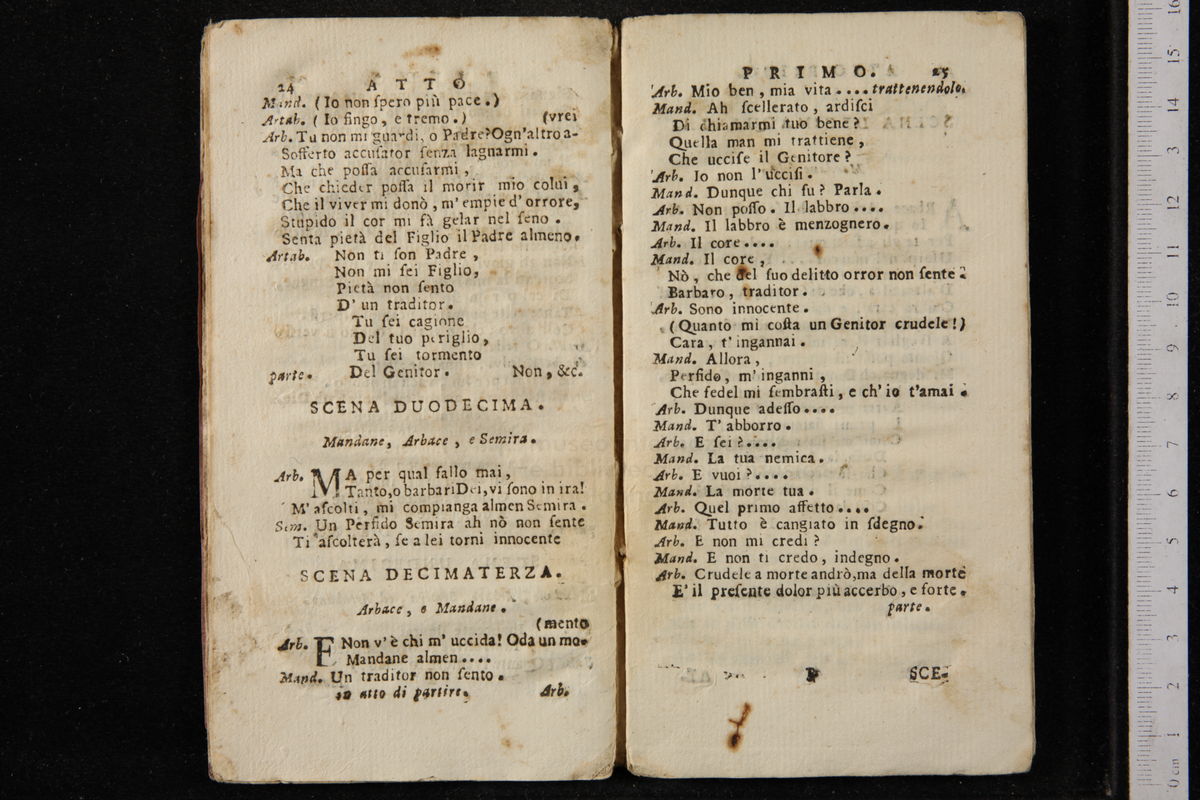 24 ATTO
Mand. (Io non ſpero più pace.)
Artab. (Io fingo, e tremo.) (vrei
Arb. Tu non mi guardi, o Padre? Ogn'altro a-
Sofferto accuſator ſenza lagnarmi.
Ma che poſſa accuſarmi,
Che chieder poſſa il morir mio colui,
Che il viver mi donò, m'empie d'orrore,
Stupido il cor mi fà gelar nel ſeno.
Senta pietà del Figlio il Padre almeno.
Artab. Non ti ſon Padre,
Non mi ſei Figlio,
Pietà non ſento
D'un traditor.
Tu ſei cagione
Del tuo periglio,
Tu ſei tormento
parte. Del Genitor. Non, &c.
SCENA DUODECIMA.
Mandane, Arbace, e Semira.
Arb. MA per qual fallo mai,
Tanto, o barbari Dei, vi ſono in ira!
M'aſcolti, mi compianga almen Semira.
Sem. Un Perfido Semira ah nò non ſente
Ti aſcolterà, ſe a lei torni innocente
SCENA DECIMATERZA.
Arbace, e Mandane.
(mento
Arb. E Non v'è chi m'uccida! Oda un mo-
Mandane almen....
Mand. Un traditor non ſento.
in atto di partire. Arb.
PRIMO. 25
Arb. Mio ben, mia vita.... trattenendolo.
Mand. Ah ſcellerato, ardiſci
Di chiamarmi tuo bene?
Quella man mi trattiene,
Che ucciſe il Genitore?
Arb. Io non l'ucciſi.
Mand. Dunque chi fu? Parla.
Arb. Non poſſo. Il labbro....
Mand. Il labbro è menzognero.
Arb. Il core....
Mand. Il core,
Nò, che del ſuo delitto orror non ſente.
Barbaro, traditor.
Arb. Sono innocente.
(Quanto mi coſta un Genitor crudele!)
Cara, t'ingannai.
Mand. Allora,
Perfido, m'inganni,
Che fedel mi ſembraſti, e ch'io t'amai.
Arb. Dunque adeſſo....
Mand. T'abborro.
Arb. E ſei?....
Mand. La tua nemica.
Arb. E vuoi?....
Mand. La morte tua.
Arb. Quel primo affetto....
Mand. Tutto è cangiato in ſdegno.
Arb. E non mi credi?
Mand. E non ti credo, indegno.
Arb. Crudele a morte andrò, ma della morte
E' il preſente dolor più accerbo, e forte.
parte.
SCE-